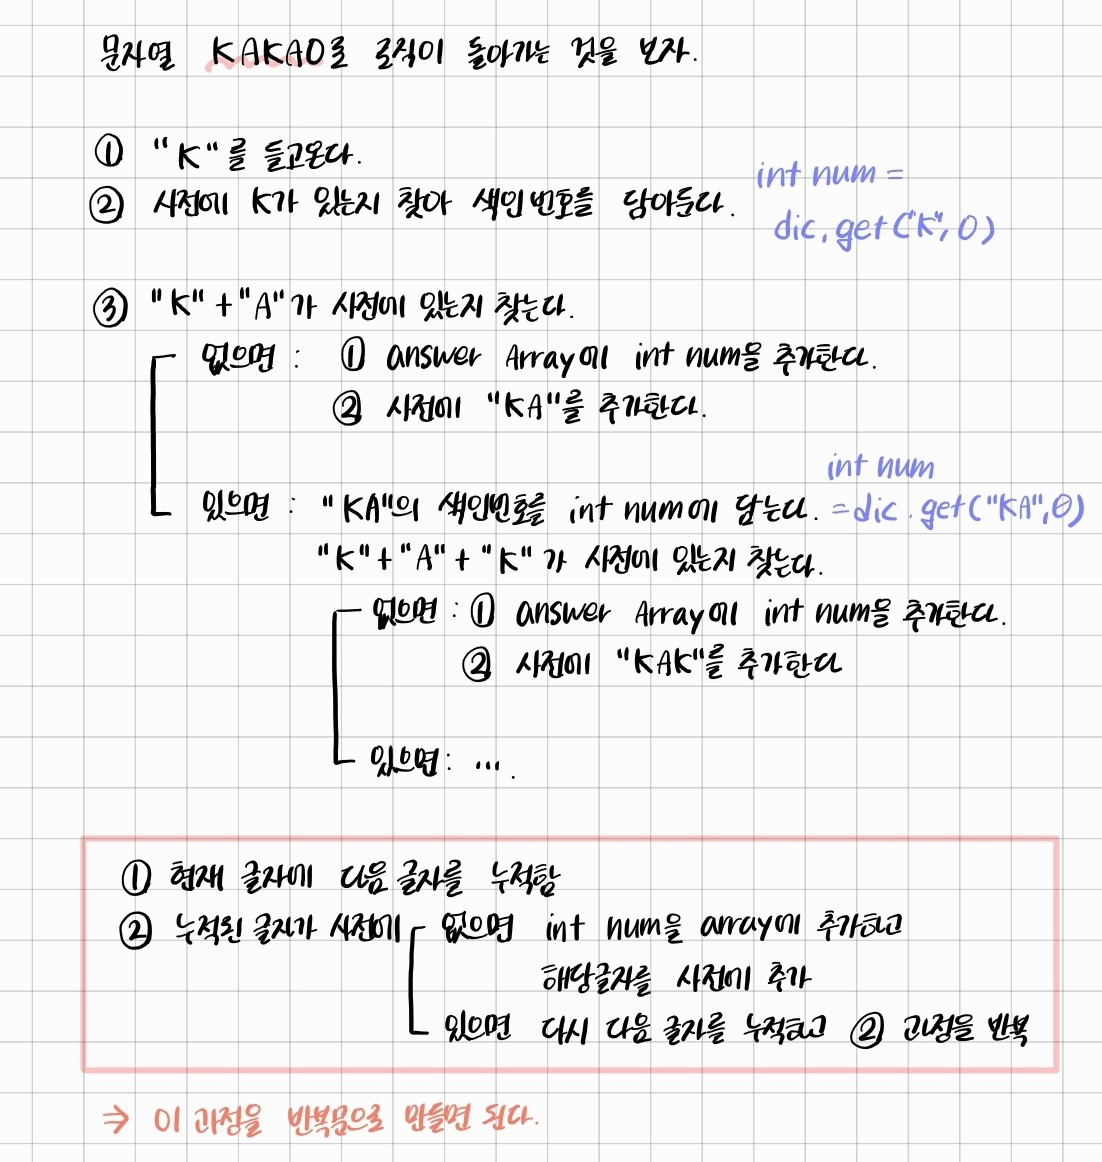 문자열 KAKAO로 로직이 돌아가는 것을 보자.
① "K"를 들고온다.
② 사전에 K가 있는지 찾아 색인번호를 담아둔다.
int num =
dic.get("K", 0)
③ "K"+"A"가 사전에 있는지 찾는다.
없으면 : ① answer Array에 int num을 추가한다.
② 사전에 "KA"를 추가한다.
있으면 : "KA"의 색인번호를 int num에 담는다.
int num
= dic.get("KA", 0)
"K"+"A"+"K"가 사전에 있는지 찾는다.
없으면 : ① answer Array에 int num을 추가한다.
② 사전에 "KAK"를 추가한다
있으면 : ... .
① 현재 글자에 다음 글자를 누적함
② 누적된 글자가 사전에 없으면 int num을 array에 추가하고
해당글자를 사전에 추가
있으면 다시 다음 글자를 누적하고 ② 과정을 반복
→ 이 과정을 반복문으로 만들면 된다.